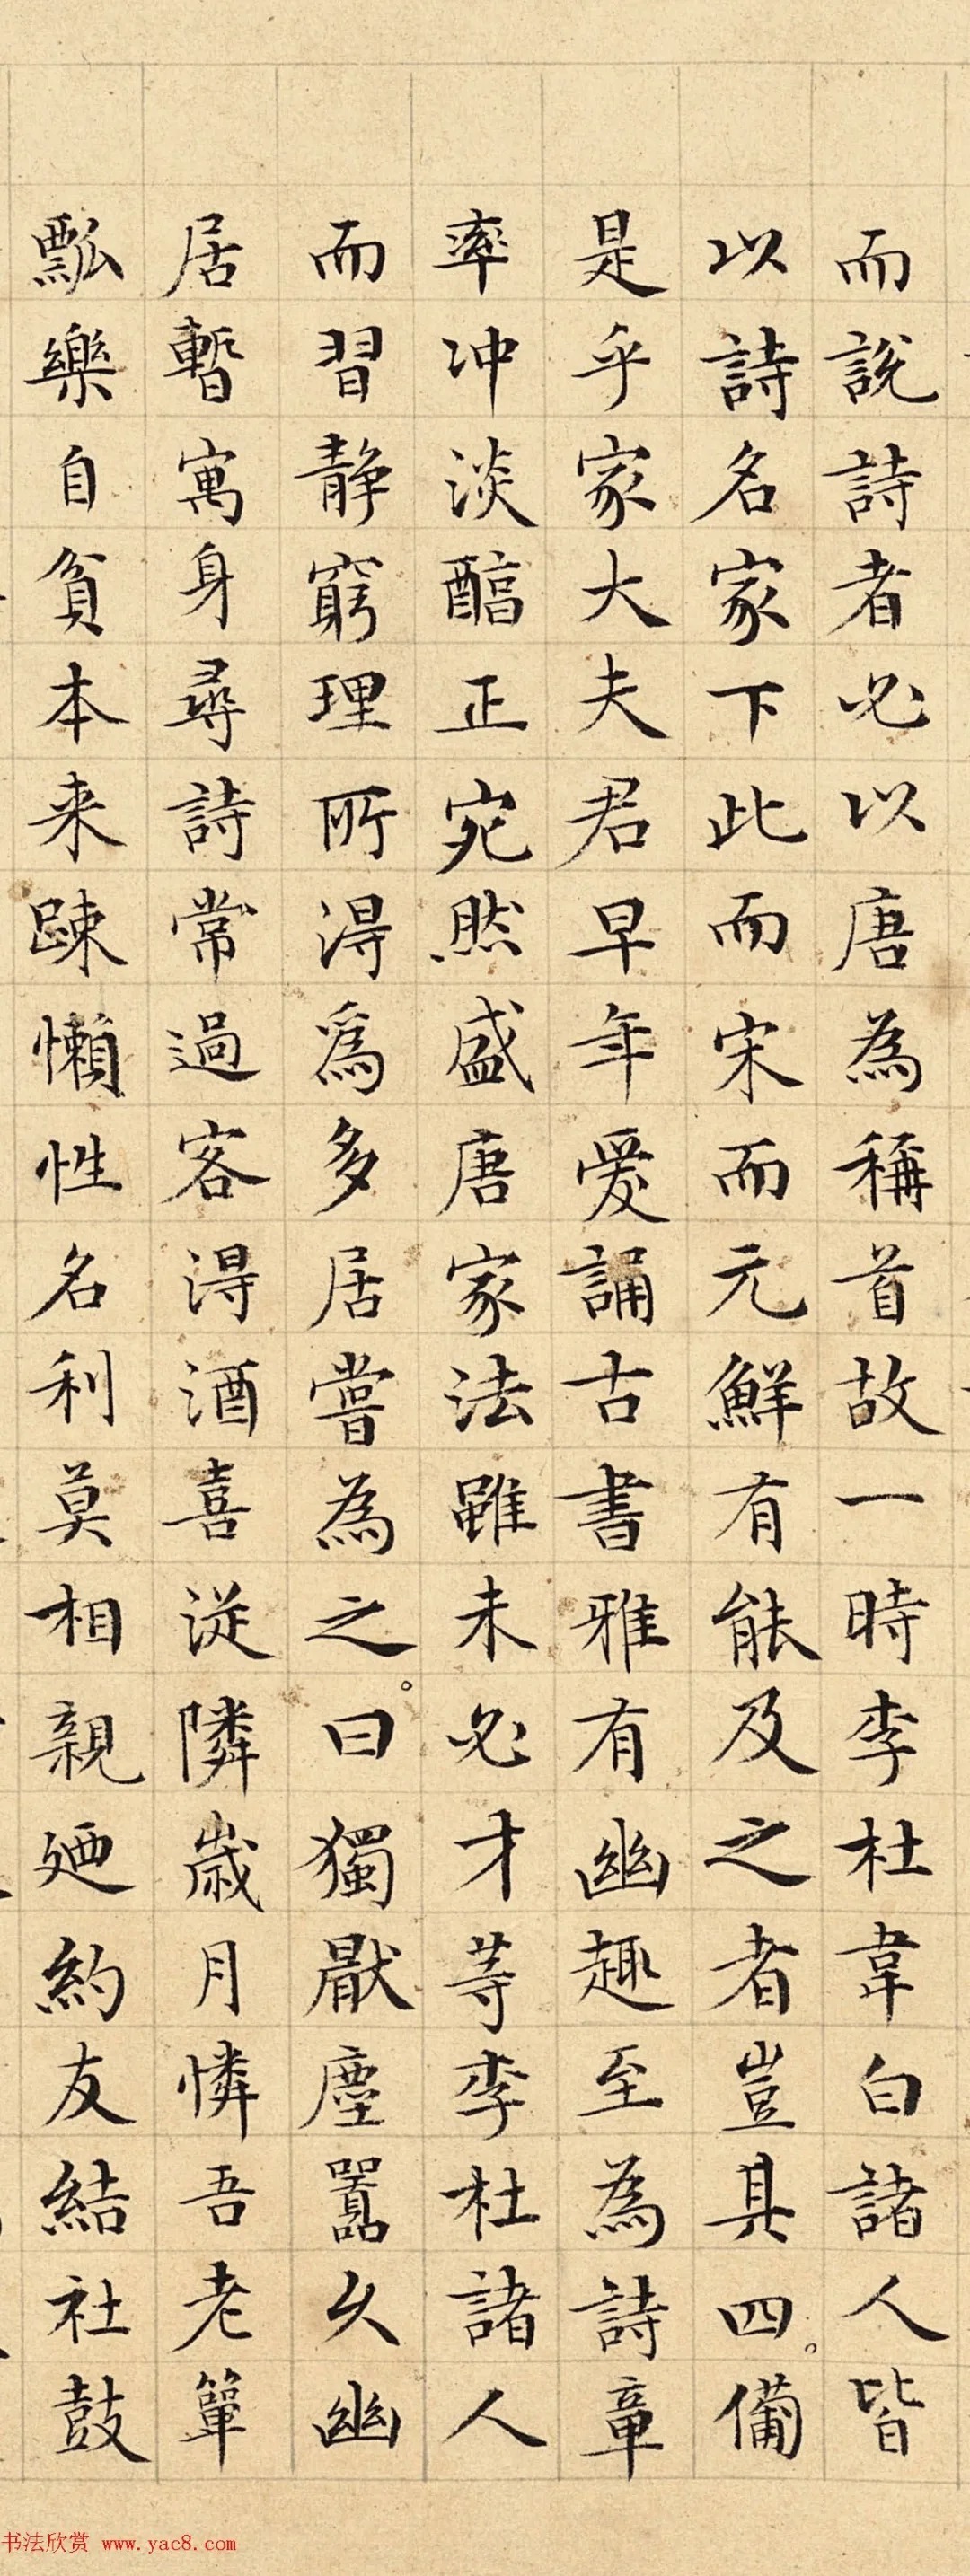 而說詩者必以唐為稱首故一時李杜韋白諸人皆
以詩名家下此而宋而元鮮有能及之者豈其四備
是乎家大夫君早年爱誦古書雅有幽趣至為詩章
率冲淡醕正宛然盛唐家法雖未必才等李杜諸人
而習静窮理所得爲多居嘗為之曰獨厭塵囂久幽
居暫寓身尋詩常過客得酒喜從隣歲月憐吾老簞
瓢樂自貧本来踈懶性名利莫相親廼約友結社鼓
书法欣赏 www.yac8.com